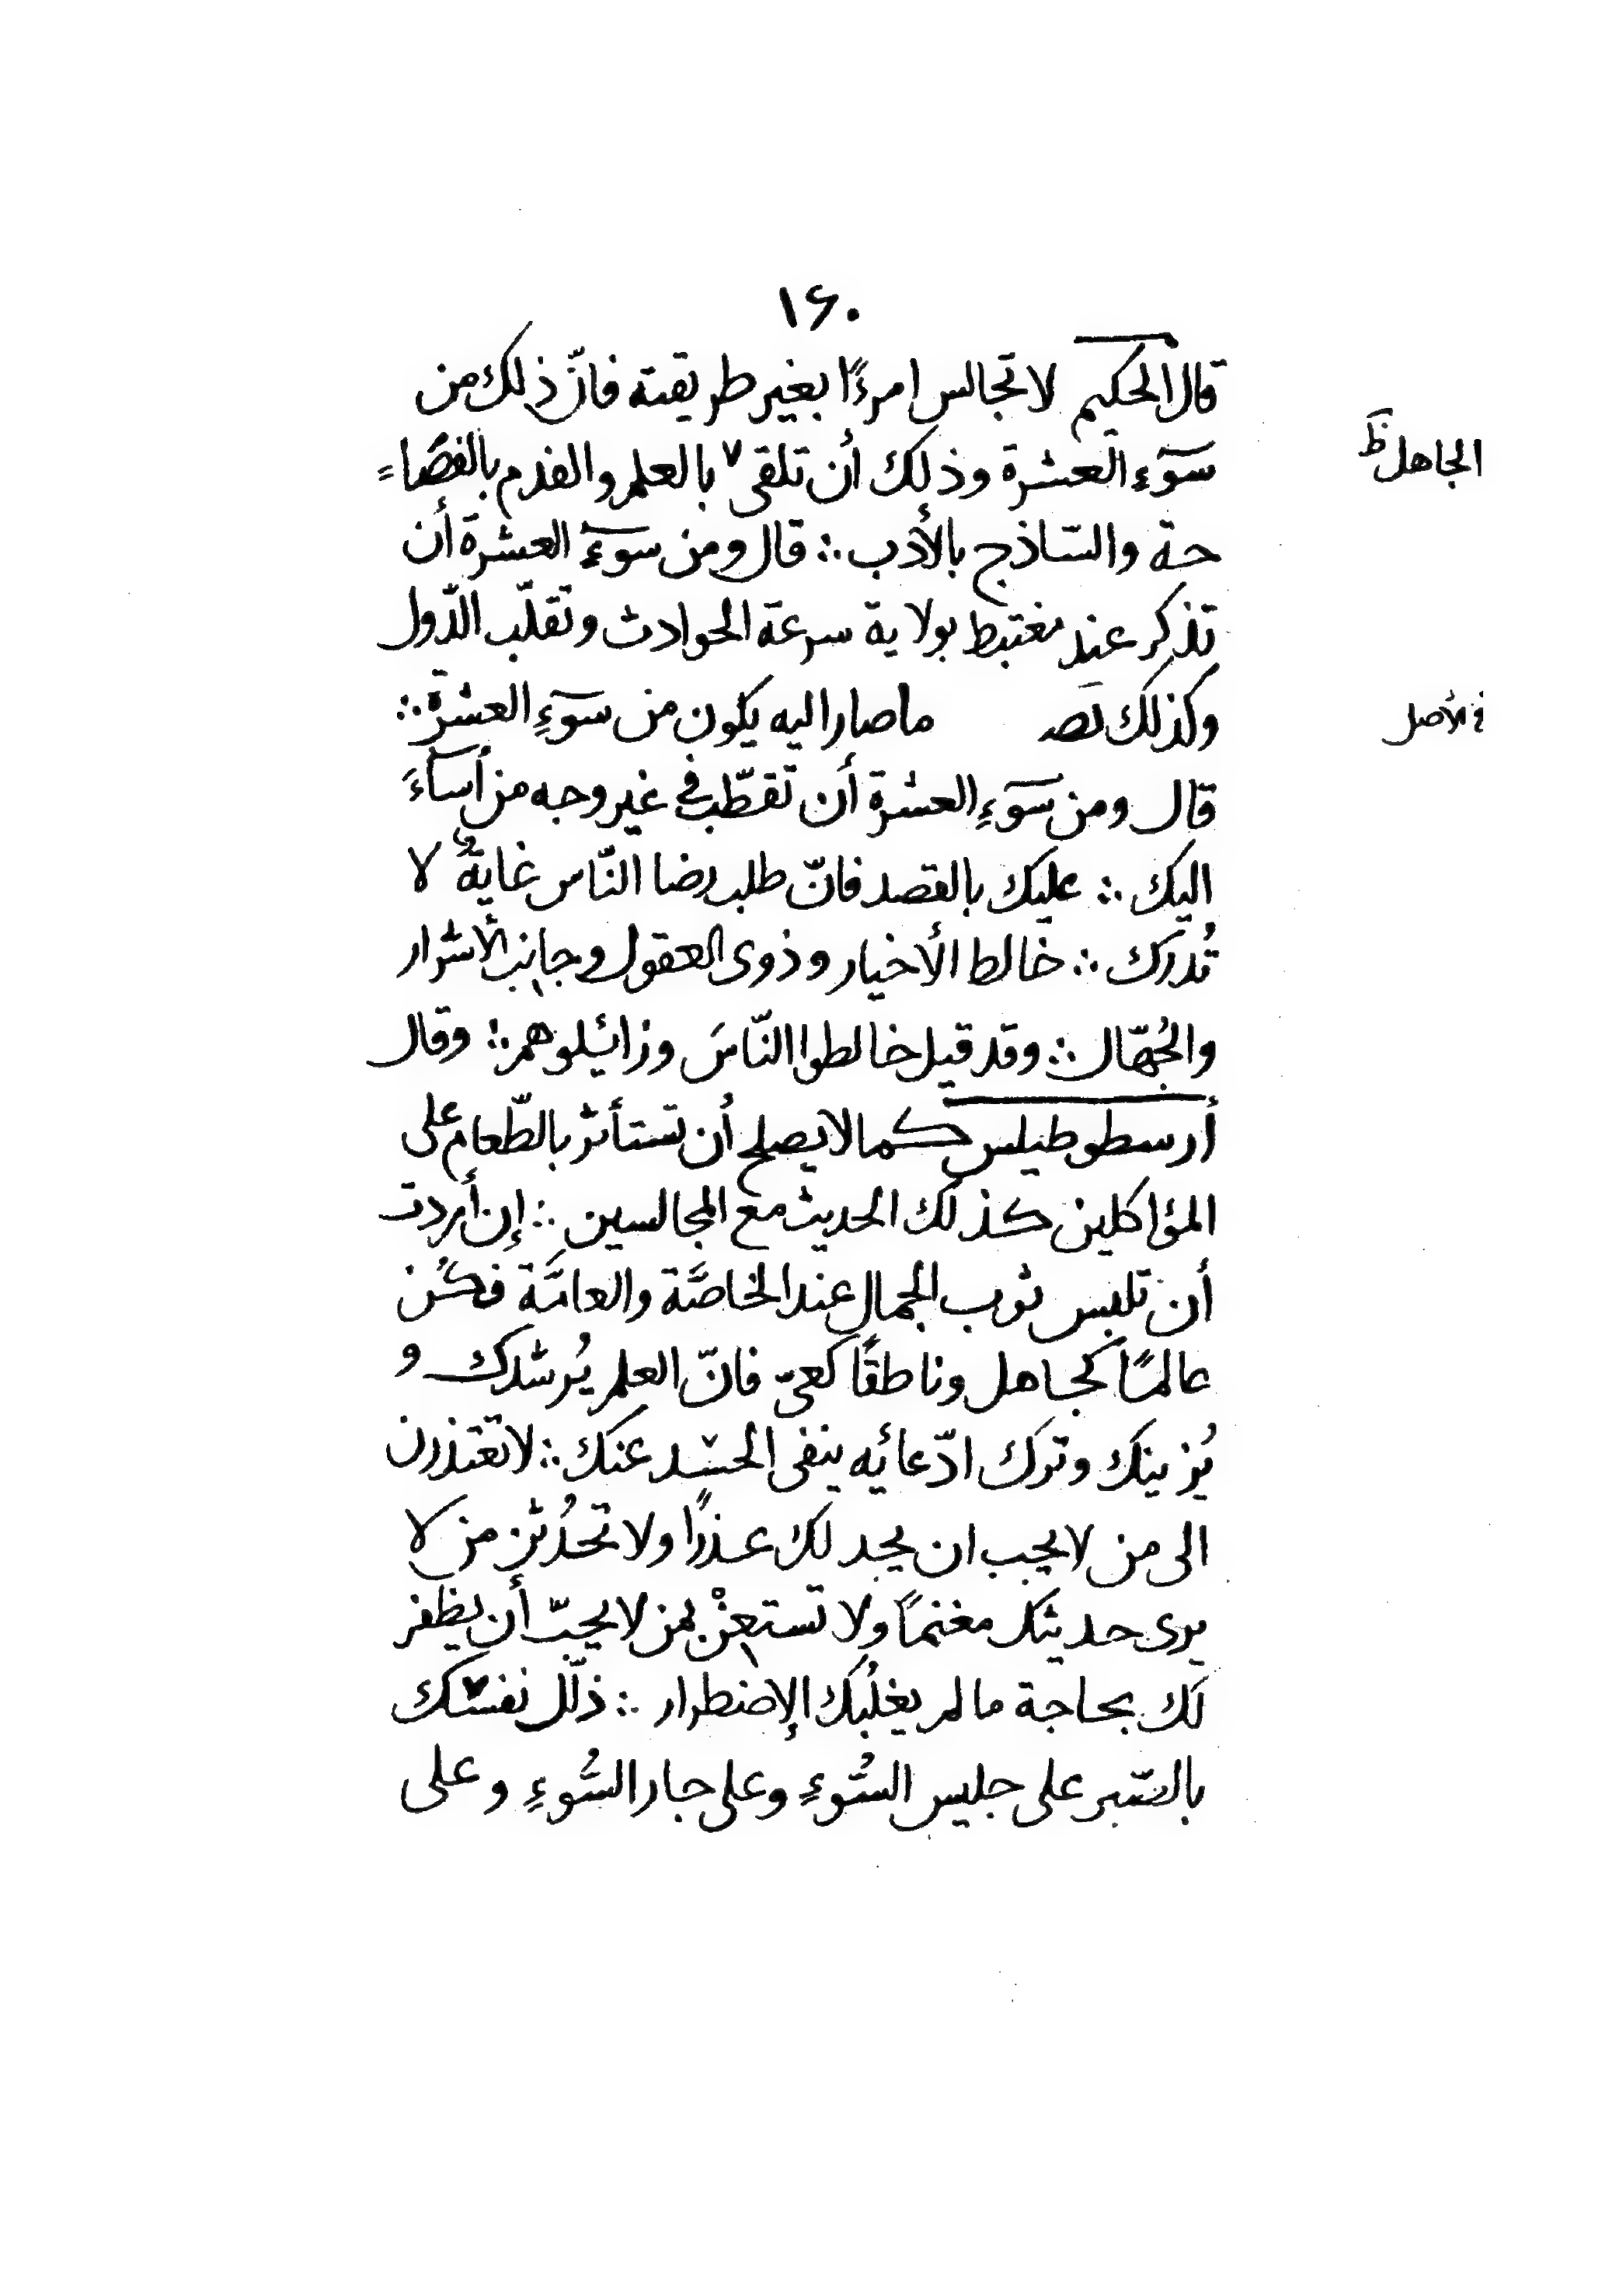 ۱۶۰
قال الحكيم لا تجالس امرءًا بغير طريقته فانّ ذلك من
سوٓءِ العشرة وذلك أن تلقى ٧ بالعلم والفدم بالفصَاءَ
الجاهل ظ
حة والسّاذج بالأدب ∴ قال ومن سوٓءِ العشرة أن
تذكر عند مغتبط بولاية سرعة الحوادث وتقلّب الدّول
وكذلك ما صار اليه يكون من سوٓءِ العشرة ∴
في الأصل
قال ومن سوٓءِ العشرة أن تقطّب في غير وجه من أسآءَ
اليك ∴ عليك بالقصد فانّ طلب رضا النّاس غايةٌ لا
تُدرك ∴ خالط الأخيار وذوى العقول وجانب الأشرار
والجُهّال ∴ وقد قيل خالطوا النّاسَ وزائيلوهم ∴ وقال
أرسطوطيلس كما لا يصلح أن تستأثر بالطّعام على
المؤاكلين كذلك الحديث مع المجالسين ∴ إن أردت
أن تلبس ثوب الجمال عند الخاصَّة والعامَّة فكُن
عالمًا كجاهل وناطقًا كعىّ فانّ العلم يُرشدك و
يُزينك وترك ادّعائه ينفى الحسد عنك ∴ لا تعتذرن
الى من لا يحب ان يجد لك عذرًا ولا تحدُثن من لا
يرى حديثك مغنمًا ولا تستعِنْ بمن لا يحبّ أن يظفر
لك بحاجة ما لم يغلُبك الإضطرار ∴ ذلّل نفسك
بالصّبر على جليس السُّوءِ وعلى جار السُّوءِ وعلى